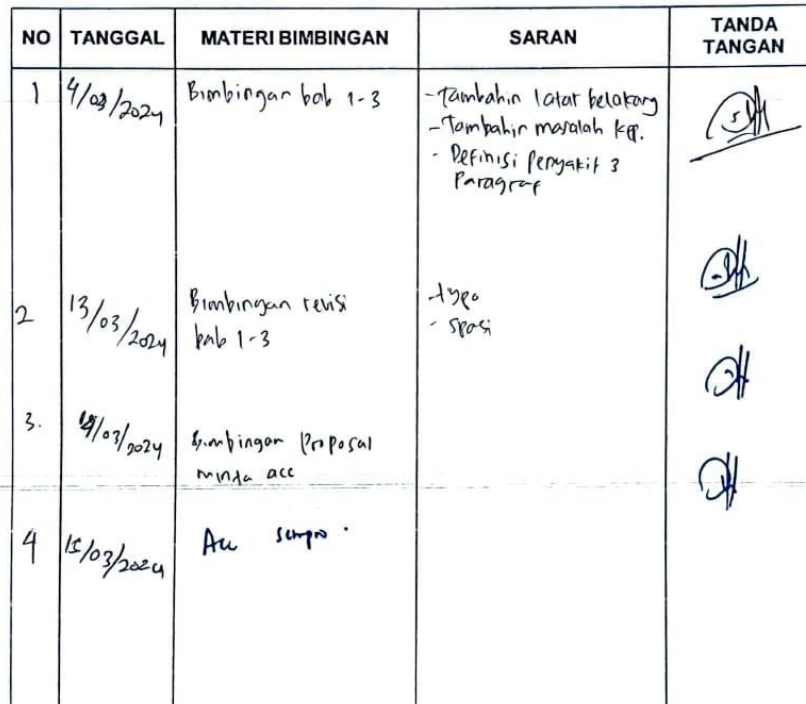 NO TANGGAL MATERI BIMBINGAN SARAN TANDA TANGAN
1 4/03/2024 Bimbingan bab 1-3
- Tambahin latar belakang
- Tambahin masalah kep.
- Definisi penyakit 3
Paragraf
2 13/03/2024 Bimbingan revisi
bab 1-3
- typo
- spasi
3. /03/2024 Bimbingan Proposal
minta acc
4 15/03/2024 Acc sempro.